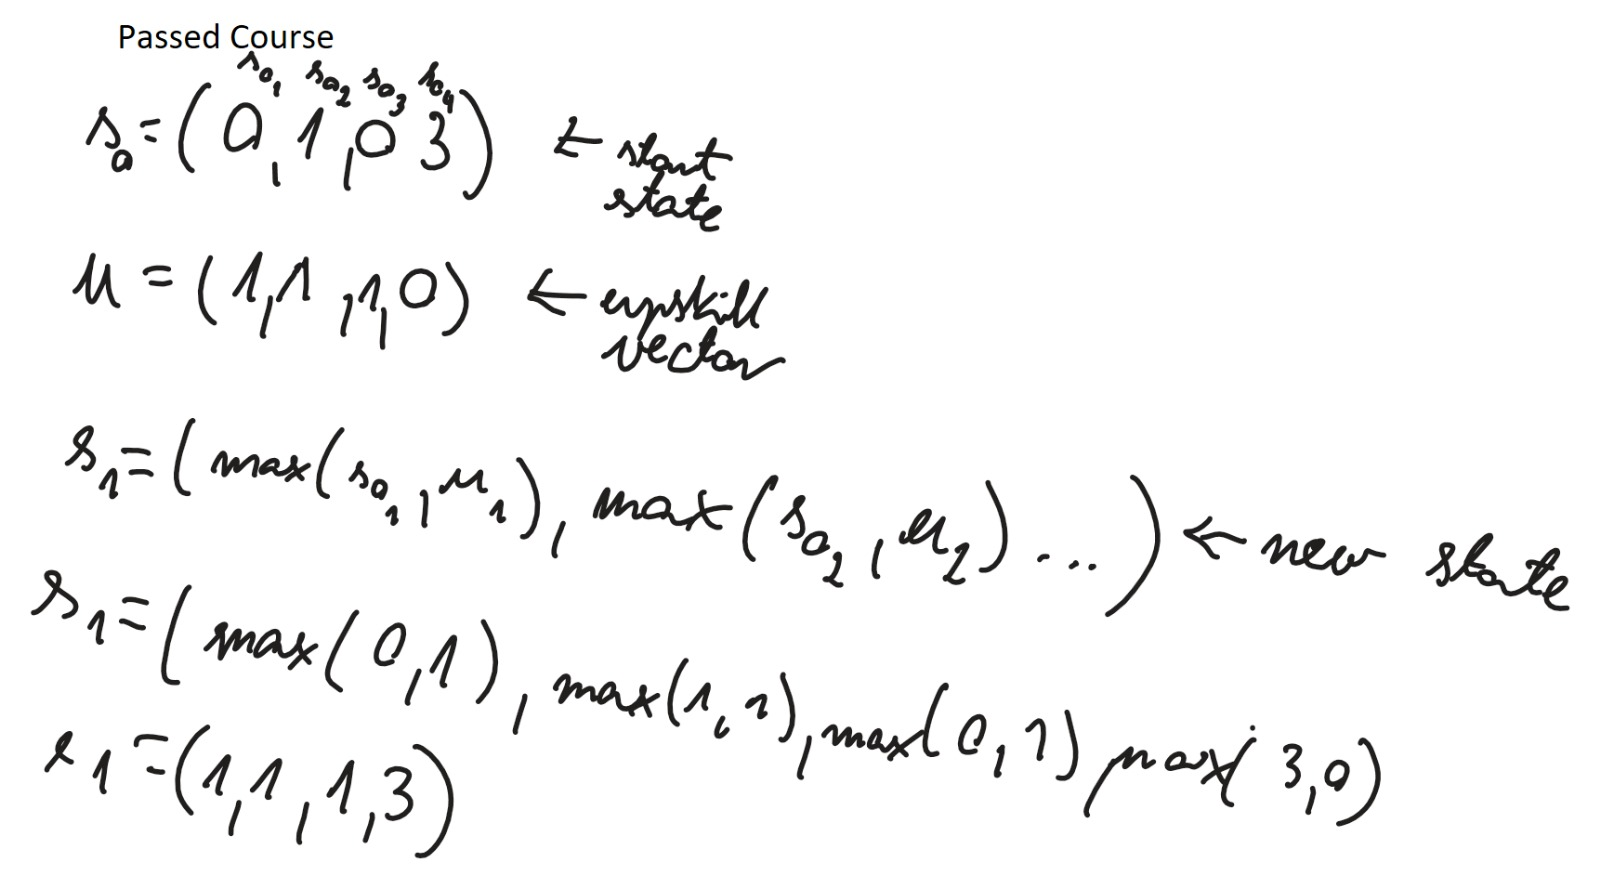 Passed Course
s₀₁ s₀₂ s₀₃ s₀₄
s₀ = (0, 1, 0 3) ← start
state
u = (1, 1, 1, 0) ← upskill
vector
s₁ = (max(s₀₁, u₁), max(s₀₂, u₂) ...) ← new state
s₁ = (max(0, 1), max(1, 1), max(0, 1), max(3, 0)
s₁ = (1, 1, 1, 3)